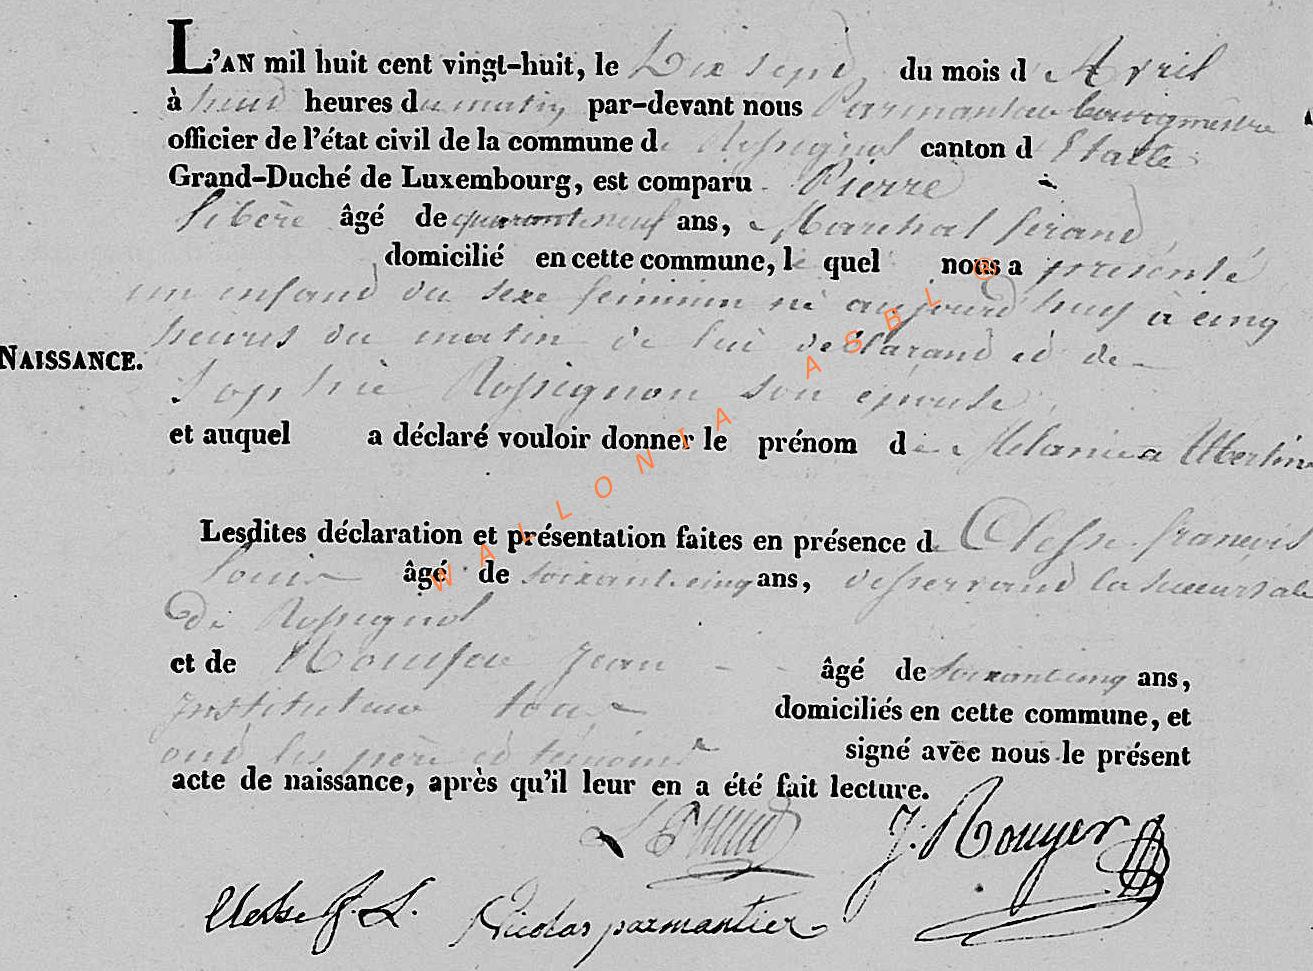 L'AN mil huit cent vingt-huit, le Dix sept du mois d'Avril
à heures du matin par-devant nous Parmantier bourgmestre
officier de l'état civil de la commune de Rossignol canton d'Etalle
Grand-Duché de Luxembourg, est comparu Pierre
âgé de quarant neuf ans, Marchal ferand,
domicilié en cette commune, le quel nous a présenté
un enfand du sexe féminin né aujourd'huy à cinq
heures du matin de lui déclarand et de
NAISSANCE.
Sophie Rossignon son épouse,
et auquel a déclaré vouloir donner le prénom de Melanie
Lesdites déclaration et présentation faites en présence de Clesse françois
Louis âgé de soixant cinq ans, desservand la succursale
De Rossignol
et de Jean âgé de soixant cinq ans,
Instituteur tous domiciliés en cette commune, et
ont les père et témoins signé avec nous le présent
acte de naissance, après qu'il leur en a été fait lecture.
J. Rouyer
Clesse f. L. Nicolas parmantier
WALLONIA ASBL ©